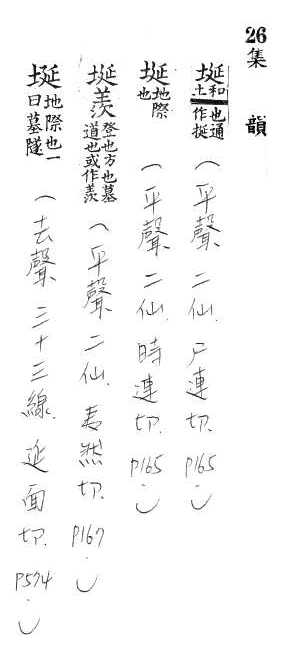 26 集韻
埏 和土也通作挻 (平聲 二仙. 尸連切. P165.)
埏 地際也 (平聲 二仙. 時連切. P165.)
埏羨 登也方也墓道也或作羨 (平聲 二仙. 夷然切. P167.)
埏 地際也一曰墓隧 (去聲 三十三線. 延面切. P574.)